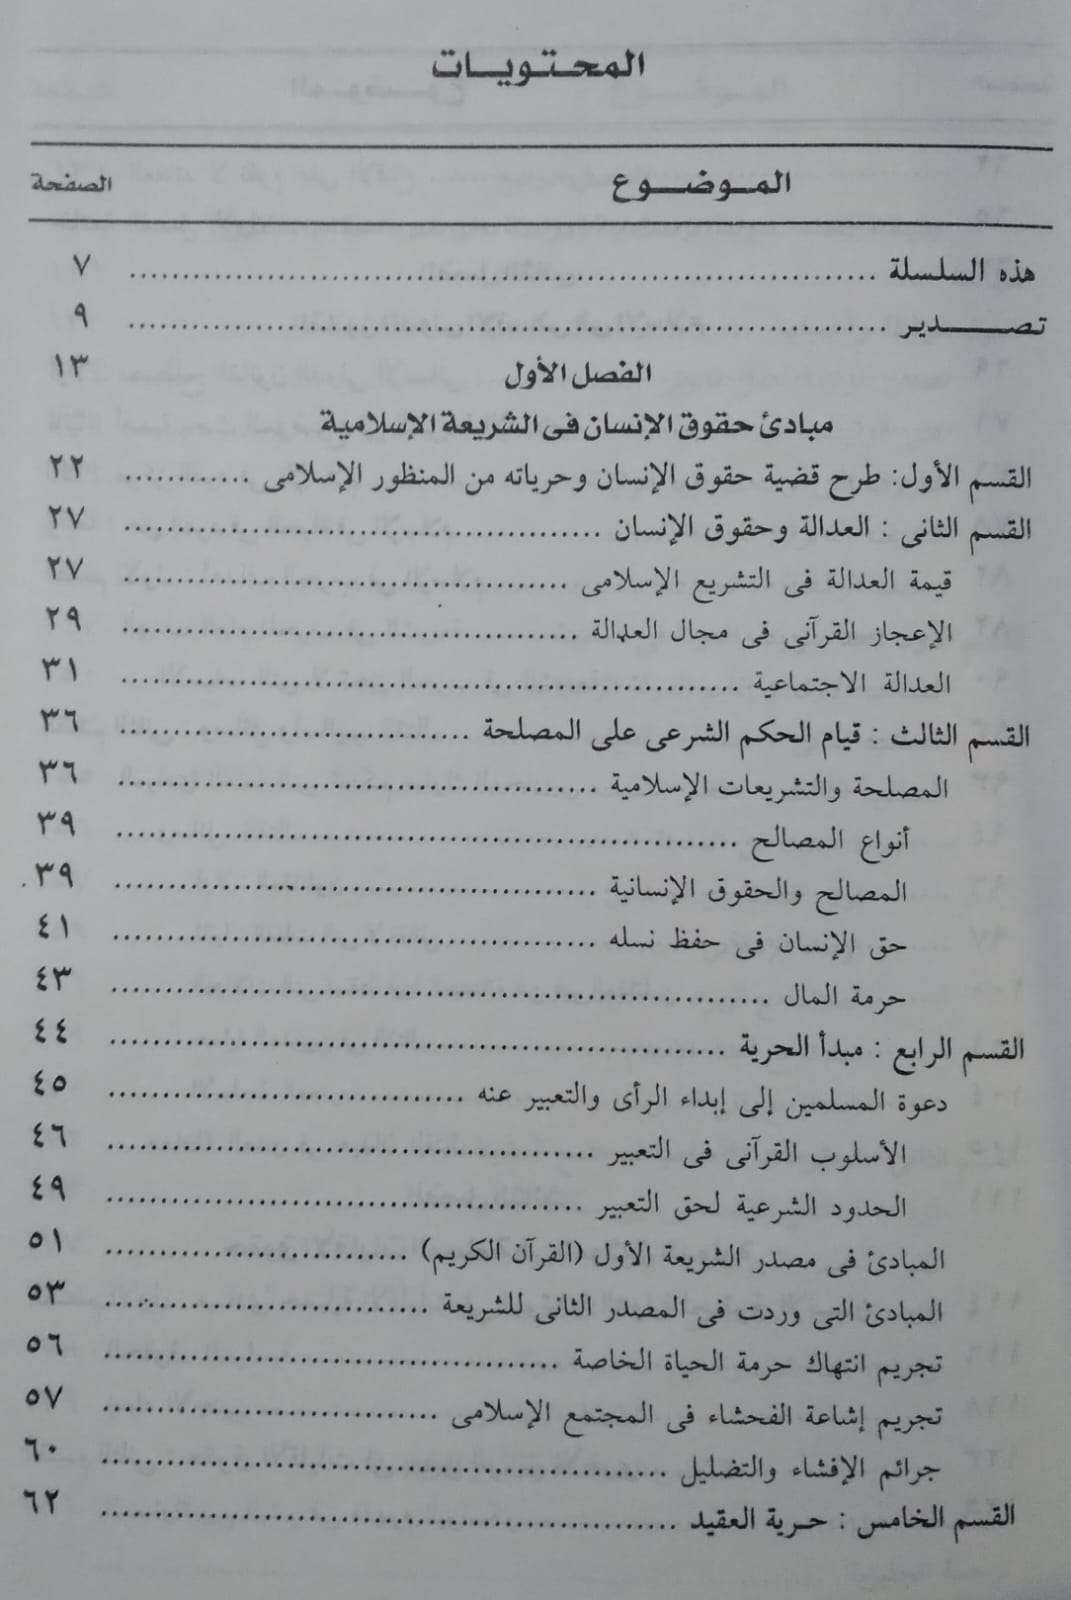 المحتويات
الموضوع الصفحة
هذه السلسلة ........ ٧
تصدير ........ ٩
الفصل الأول ١٣
مبادئ حقوق الإنسان فى الشريعة الإسلامية
القسم الأول: طرح قضية حقوق الإنسان وحرياته من المنظور الإسلامى ........ ٢٢
القسم الثانى : العدالة وحقوق الإنسان ........ ٢٧
قيمة العدالة فى التشريع الإسلامى ........ ٢٧
الإعجاز القرآنى فى مجال العدالة ........ ٢٩
العدالة الاجتماعية ........ ٣١
القسم الثالث : قيام الحكم الشرعى على المصلحة ........ ٣٦
المصلحة والتشريعات الإسلامية ........ ٣٦
أنواع المصالح ........ ٣٩
المصالح والحقوق الإنسانية ........ ٣٩
حق الإنسان فى حفظ نسله ........ ٤١
حرمة المال ........ ٤٣
القسم الرابع : مبدأ الحرية ........ ٤٤
دعوة المسلمين إلى إبداء الرأى والتعبير عنه ........ ٤٥
الأسلوب القرآنى فى التعبير ........ ٤٦
الحدود الشرعية لحق التعبير ........ ٤٩
المبادئ فى مصدر الشريعة الأول (القرآن الكريم) ........ ٥١
المبادئ التى وردت فى المصدر الثانى للشريعة ........ ٥٣
تجريم انتهاك حرمة الحياة الخاصة ........ ٥٦
تجريم إشاعة الفحشاء فى المجتمع الإسلامى ........ ٥٧
جرائم الإفشاء والتضليل ........ ٦٠
القسم الخامس : حرية العقيد ........ ٦٢